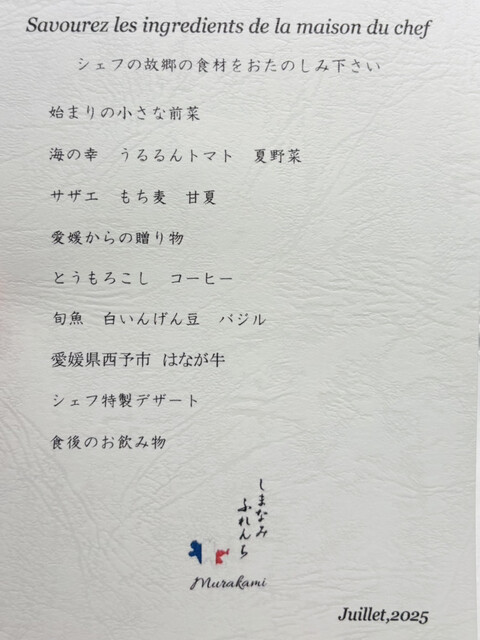 Savourez les ingredients de la maison du chef
シェフの故郷の食材をおたのしみ下さい
始まりの小さな前菜
海の幸　うるるんトマト　夏野菜
サザエ　もち麦　甘夏
愛媛からの贈り物
とうもろこし　コーヒー
旬魚　白いんげん豆　バジル
愛媛県西予市　はなが牛
シェフ特製デザート
食後のお飲み物
しまなみ
ふれんち
Murakami
Juillet,2025